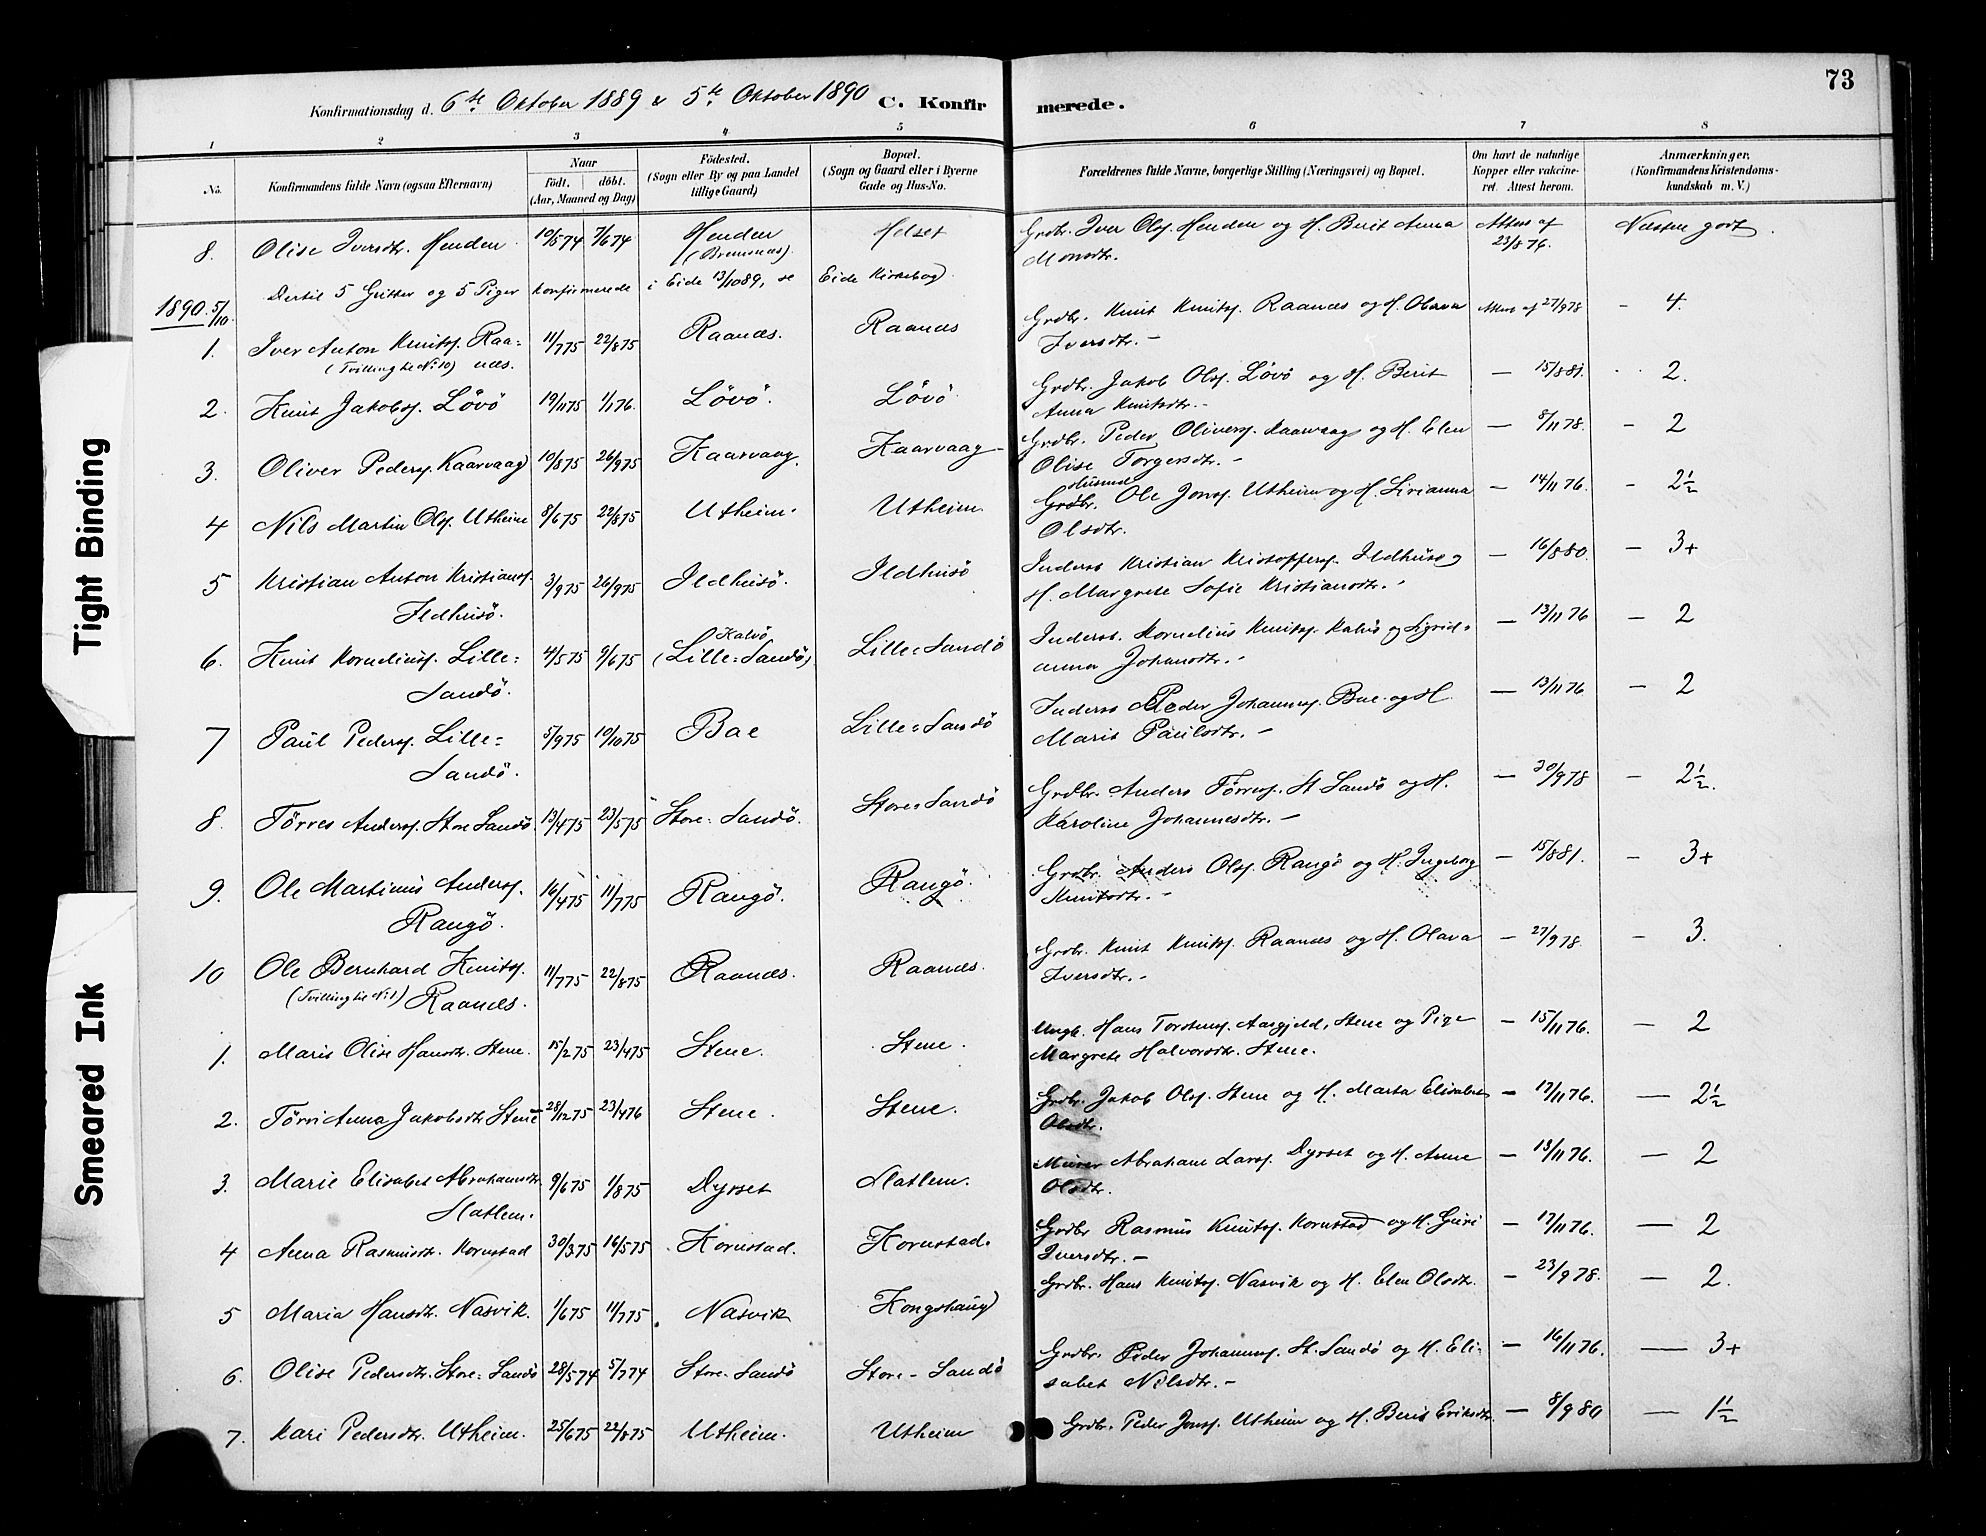 73
Konfirmationsdag d. 6te Oktober 1889 & 5te Oktober 1890 C. Konfirmerede.
1 2 3 4 5 6 7 8
No. Konfirmandens fulde Navn (ogsaa Efternavn) Naar födt. döbt. (Aar, Maaned og Dag) Födested. (Sogn eller By og paa Landet tillige Gaard) Bopæl. (Sogn og Gaard eller i Byerne Gade og Hus-No. Forældrenes fulde Navne, borgerlige Stilling (Næringsvei) og Bopæl. Om havt de naturlige Kopper eller vakcineret. Attest herom. Anmærkninger. (Konfirmandens Kristendomskundskab m. V.)
8. Olise Iversdtr. Henden 10/5 74 7/6 74 Henden (Bremsnæs) Helset Grdbr. Iver Ols. Henden og H. Berit Anna Monsdtr. Attest af 23/8 76. Næsten godt.
Dertil 5 Gutter og 5 Piger konfirmerede i Eide 13/10 89, se Eide Kirkebog.
1890. 5/10.
1. Iver Anton Knuts. Raanæs. (Tvilling til No 10) 11/7 75 22/8 75 Raanæs. Raanæs Grdbr. Knut Knuts. Raanæs og H. Olava Iversdtr. – Attest af 27/9 78 – 4.
2. Knut Jakobs. Lövö 19/11 75 1/1 76. Lövö. Lövö. Grdbr. Jakob Ols. Lövö og H. Berit Anna Knutsdtr. – – 15/8 81. 2.
3. Oliver Peders. Kaarvaag 10/8 75 26/9 75 Kaarvaag. Kaarvaag Grdbr. Peder Olivers. Kaarvaag og H. Elen Olise Torgersdtr. – – 8/11 78. – 2
4 Nils Martin Ols. Utheim 8/6 75 22/8 75 Utheim. Utheim. Grdbr. Husmd Ole Jons. Utheim og H. Sirianna Olsdtr. – 14/11 76. – 2½
5 Kristian Anton Kristians. Ildhusö. 3/9 75 26/9 75 Ildhusö. Ildhusö Inderst Kristian Kristoffers. Ildhusö og H. Margrete Sofie Kristiansdtr. – – 16/8 80. – 3+
6. Knut Kornelius. Lille=Sandö. 4/5 75 9/6 75 Kalvö (Lille=Sandö) Lille=Sandö Inderst. Kornelius Knuts. Kalvö og Sigridanna Johansdtr. – – 13/11 76 – 2
7 Paul Peders. Lille=Sandö. 5/9 75 10/10 75 Bae Lille=Sandö Inderst Peder Johanness. Bae og H. Marit Paulsdtr. – – 13/11 76 – 2
8. Törres Anders. Store Sandö. 13/4 75 23/5 75 Store=Sandö. Store=Sandö Grdbr. Anders Törres. St. Sandö og H. Karoline Johannesdtr. – – 30/9 78 – 2½.
9. Ole Martinus Anders. Rangö. 16/4 75 11/7 75 Rangö. Rangö. Grdbr. Anders Ols. Rangö og H. Ingeborg Knutsdtr. – – 15/8 81. – 3+
10 Ole Bernhard Knuts. Raanæs. (Tvilling til No 1) 11/7 75 22/8 75 Raanæs. Raanæs. Grdbr. Knut Knuts. Raanæs og H. Olava Iversdtr. – – 27/9 78. – 3.
1. Marit Olise Hansdtr. Stene. 15/2 75 23/4 75 Stene. Stene. Ungk. Hans Torstens. Aasgjeld, Stene og Pige Margrete Halvorsdtr. Stene. – 15/11 76. – 2
2. Törri Anna Jakobsdtr Stene 28/12 75 23/4 76 Stene. Stene. Grdbr. Jakob Ols. Stene og H. Marta Elisabet Olsdtr. – 17/11 76. – 2½
3. Marie Elisabet Abrahamsdtr. Slatlem. 9/6 75 1/8 75 Dyrset Slatlem. Murer Abraham Lars. Dyrset og H. Anne Olsdtr. – 13/11 76. – 2
4 Anna Rasmusdtr. Kornstad 30/3 75 16/5 75 Kornstad. Kornstad. Grdbr Rasmus Knuts. Kornstad og H. Guri Iversdtr. – – 17/11 76. – 2
5 Maria Hansdtr. Nasvik. 1/6 75 11/7 75 Nasvik Kongshaug Grdbr. Hans Knuts. Nasvik og H. Elen Olsdtr. – 23/9 78. – 2.
6. Olise Pedersdtr. Store=Sandö 28/5 74 5/7 74 Store=Sandö Store-Sandö Grdbr. Peder Johanness. St. Sandö og H. Elisabet Nilsdtr. – – 16/11 76. – 3+
7. Kari Pedersdtr. Utheim. 25/6 75 22/8 75 Utheim. Utheim Grdbr. Peder Jons. Utheim og H. Berit Eriksdtr. – 8/9 80 – 1½
Tight Binding
Smeared Ink